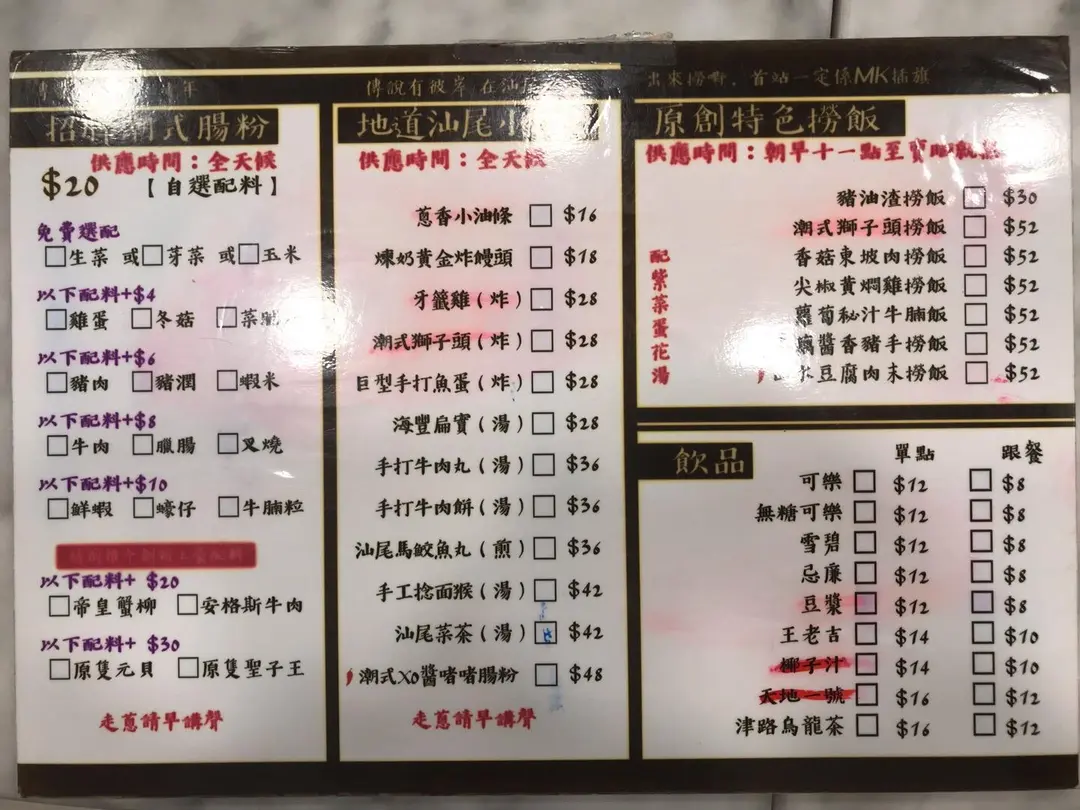 年
傳說有彼岸 在汕
出來撈嘢，首站一定係MK插旗
招牌潮式腸粉
供應時間：全天候
$20 【自選配料】
免費選配
生菜 或 芽菜 或 玉米
以下配料+$4
雞蛋 冬菇 菜脯
以下配料+$6
豬肉 豬潤 蝦米
以下配料+$8
牛肉 臘腸 叉燒
以下配料+$10
鮮蝦 蠔仔 牛腩粒
以下配料+ $20
帝皇蟹柳 安格斯牛肉
以下配料+ $30
原隻元貝 原隻聖子王
走蔥請早講聲
地道汕尾小
供應時間：全天候
蔥香小油條 $16
煉奶黃金炸饅頭 $18
牙籤雞（炸） $28
潮式獅子頭（炸） $28
巨型手打魚蛋（炸） $28
海豐扁實（湯） $28
手打牛肉丸（湯） $36
手打牛肉餅（湯） $36
汕尾馬鮫魚丸（煎） $36
手工捻面猴（湯） $42
汕尾菜茶（湯） $42
潮式XO醬啫啫腸粉 $48
走蔥請早講聲
原創特色撈飯
供應時間：朝早十一點至賣
配紫菜蛋花湯
豬油渣撈飯 $30
潮式獅子頭撈飯 $52
香菇東坡肉撈飯 $52
尖椒黃燜雞撈飯 $52
蘿蔔秘汁牛腩飯 $52
醬香豬手撈飯 $52
豆腐肉末撈飯 $52
飲品 單點 跟餐
可樂 $12 $8
無糖可樂 $12 $8
雪碧 $12 $8
忌廉 $12 $8
豆漿 $12 $8
王老吉 $14 $10
椰子汁 $14 $10
天地一號 $16 $12
津路烏龍茶 $16 $12